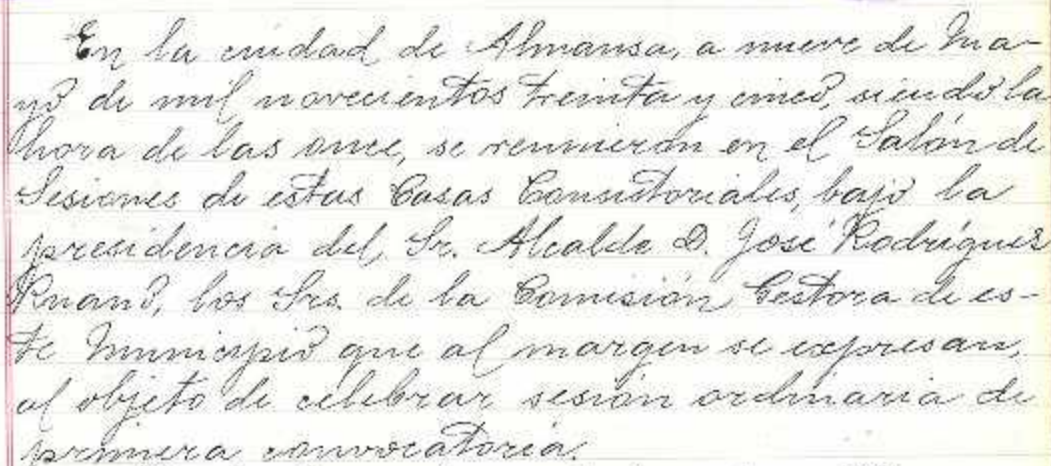 En la ciudad de Almansa, a nueve de Ma-
yo de mil novecientos treinta y cinco, siendo la
hora de las once, se reunieron en el Salón de
Sesiones de estas Casas Consistoriales, bajo la
presidencia del Sr. Alcalde D. José Rodríguez
Ruano, los Srs. de la Comisión Gestora de es-
te Municipio que al margen se expresan,
al objeto de celebrar sesión ordinaria de
primera convocatoria.